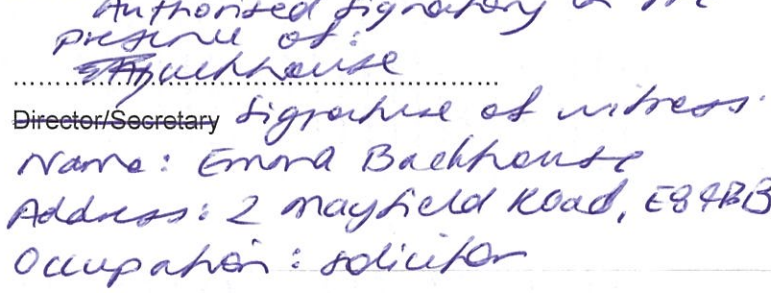 Authorised signatory in the
presence of:
EABackhouse
Director/Secretary Signature of witness.
Name: Emma Backhouse
Address: 2 Mayfield Road, E8
Occupation: solicitor